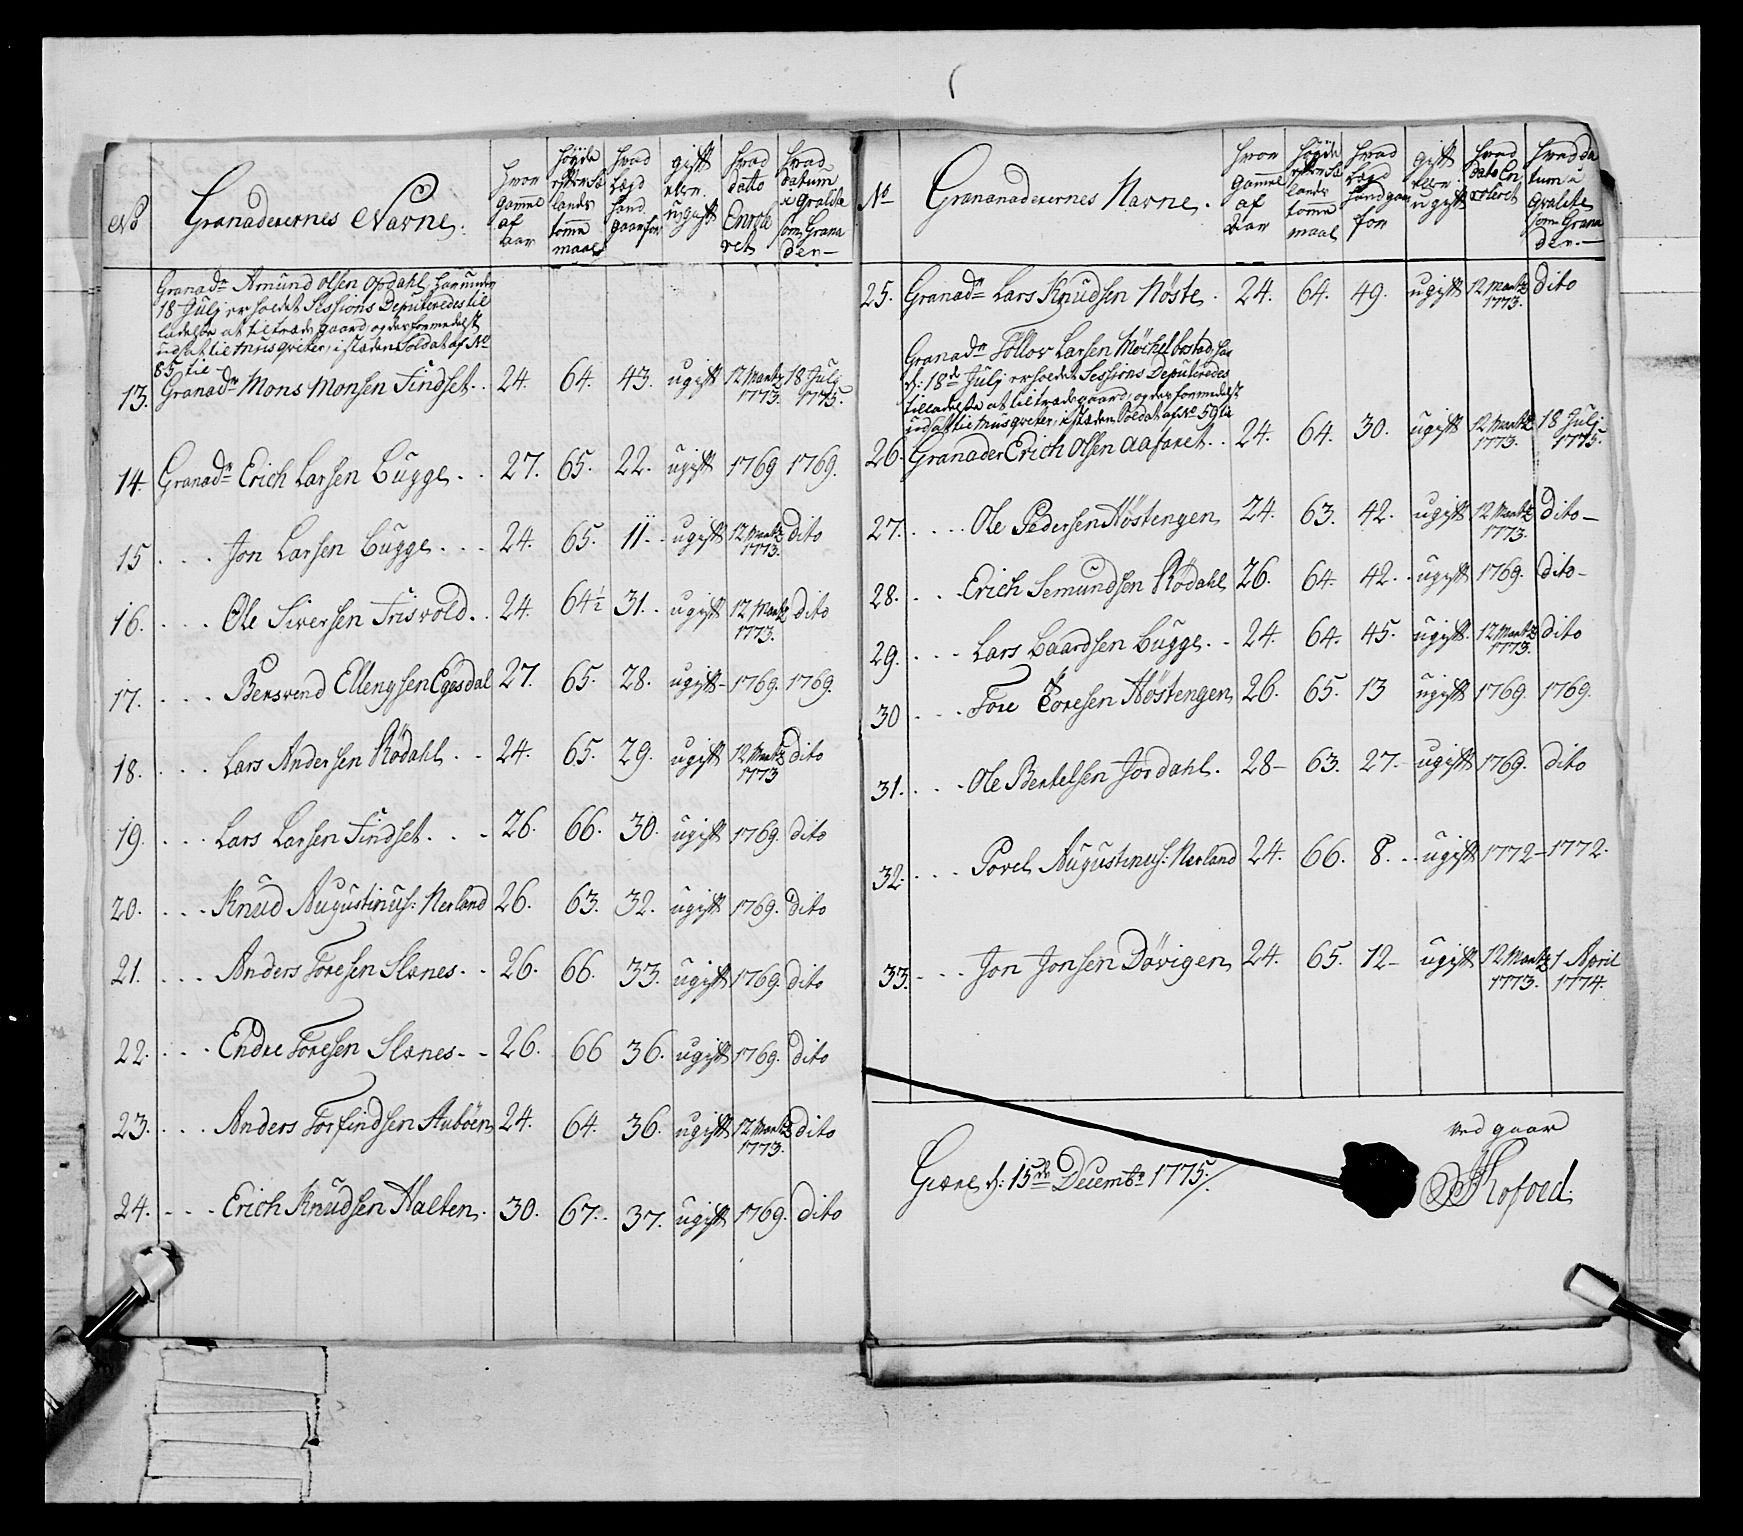 No | Granaderernes Navne. | hvor gamle af aar | høyde efter Sælands tomme maal | hvad lægd hand gaar for | gift eller ugift | hvad datto Enrolleret | hvad datum i qvalitæ som Granader
Granadr Amund Olsen Opdahl har under
18 Julj erholdet Sessions Deputeredes til
ladelse at tiltræde gaard og derformedelst
udsat til Musqviter, i stæden Soldat af No
85 til
13. Granadr Mons Monsen Findset. . 24. 64. 43. ugift 12 Martz 1773. 18 Julj 1775.
14. Granadr Erich Larsen Bugge. . 27. 65. 22. ugift 1769 1769.
15 . . . Jon Larsen Bugge. . . 24. 65. 11. - ugift 12 Martz 1773. dito
16. . . . Ole Siversen Frisvold. . 24. 64½ 31. . ugift 12 Martz 1773. dito
17. . . . Bersvend Ellengsen Egesdal 27. 65. 28. ugift - 1769. 1769.
18. . . . Lars Andersen Rødahl. . . 24. 65. 29. ugift 12 Martz 1773 dito
19. . . . Lars Larsen Findset. . . 26. 66. 30. ugift 1769. dito
20. . . . Knud Augustinus: Nerland 26. 63. 32. ugift 1769. dito
21. . . . Anders Toresen Slenes. . 26. 66. 33. ugift 1769. dito
22. . . . Endre Toresen Slenes. . 26. 66 36. ugift 1769. dito
23. . . . Anders Torfindsen Stubøen 24. 64. 36. ugift 12 Martz 1773. dito
24. . . . Erich Knudsen Halten. 30. 67. . 37. ugift 1769. dito
No | Grananaderernes Navne. | hvor gamle af Aar | høyde efter Sælands tomme maal | hvad lægd hand gaar for | gift eller ugift | hvad dato Enrolleret | hvad datum i qvalitæ som Granader
25. Granadr Lars Knudsen Nøste. 24. 64. 49. ugift 12 Martz 1773. dito
Granadr Tollov Larsen Meckelbostad har
d: 18de Julj erholdet Sessions Deputeredes
tilladelse at tiltræde gaard, og derformedelst
udsat til Musqviter, i stæden Soldat af No 59 til
26. Granader Erich Olsen Aafaret. . 24. 64. 30. ugift 12 Martz 1773. 18 Julj 1775.
27. . . . Ole Pedersen Høstengen 24. 63. 42. ugift 12 Martz 1773. dito -
28. . . . Erich Semundsen Rødahl 26. 64. 42. . ugift 1769. dito -
29. . . . Lars Baardsen Bugge. . 24. 64. 45. ugift. 12 Martz 1773. dito
30 . . . Tore Toresen Høstengen 26. 65. 13 ugift 1769. 1769.
31. . . . Ole Bertelsen Jordahl. 28 - 63. 27. - ugift 1769. dito
32. . . . Povel Augustinus: Nerland 24. 66. 8. . . ugift 1772 - 1772.
33. . . . Jon Jonsen Døvigen 24. 65. 12 - ugift 12 Martz 1773. 1 April 1774.
Giære d: 15de Decembr 1775.
ved gaar
Kofoed.